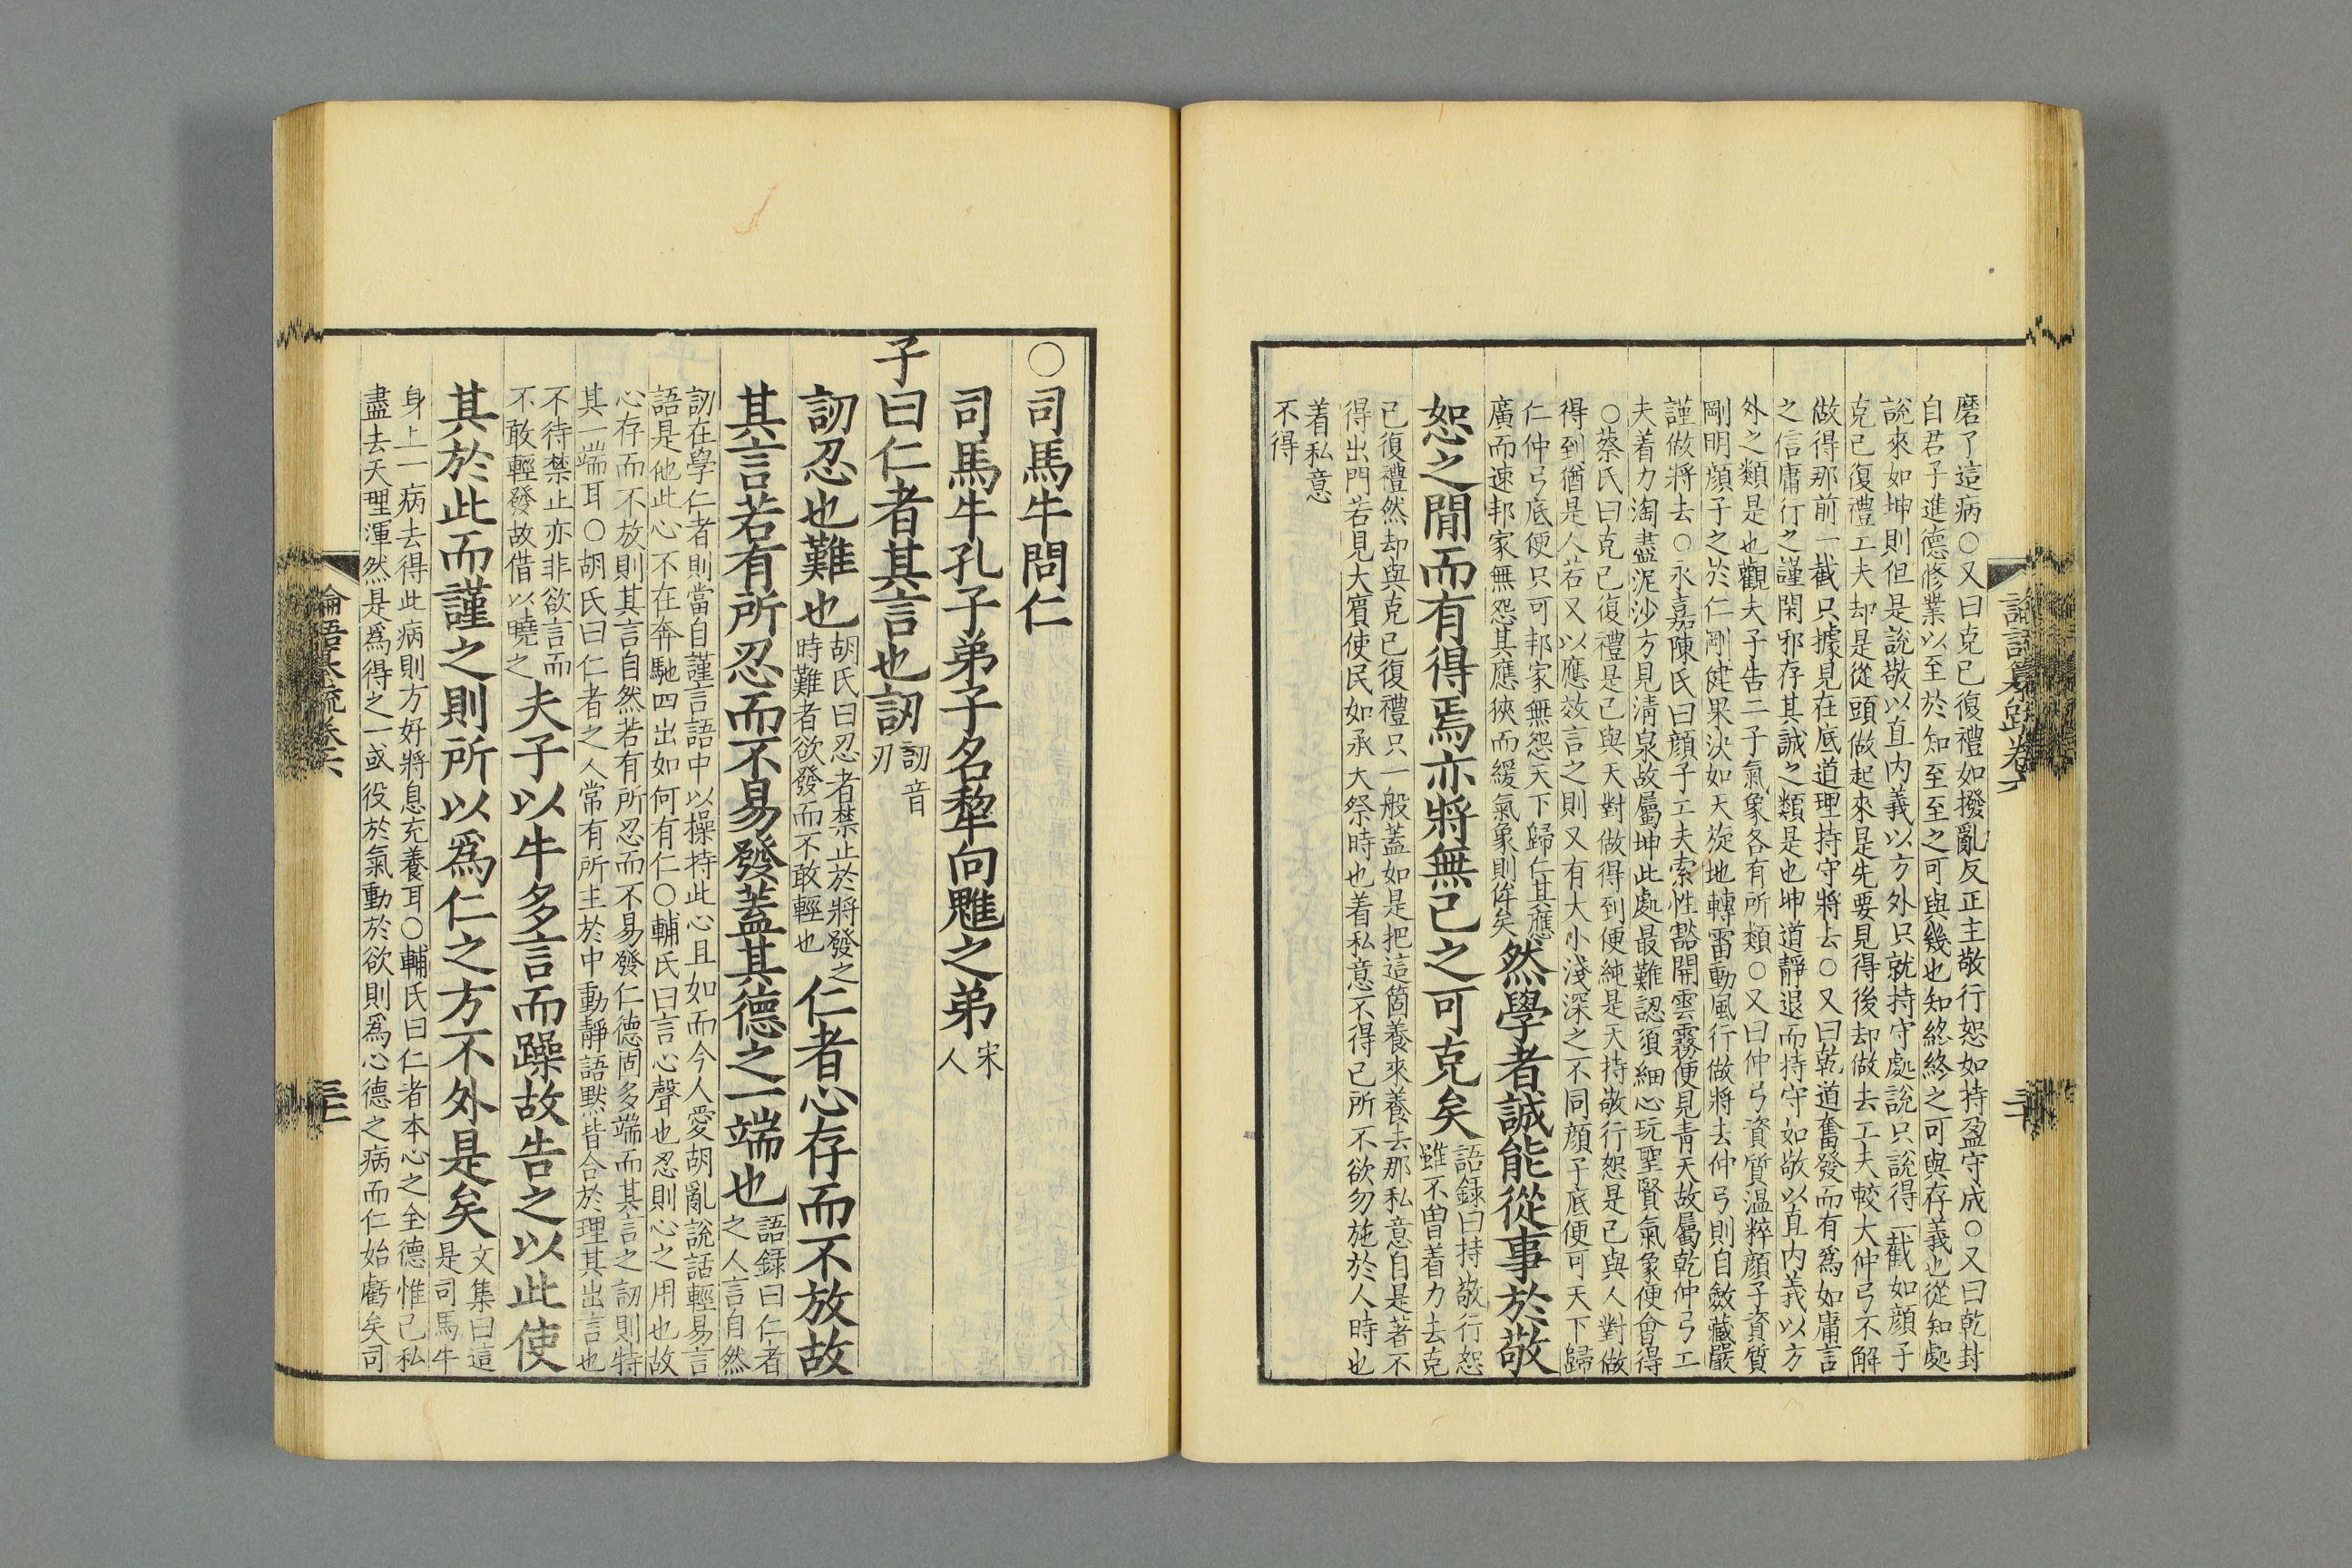 磨了這病○又曰克己復禮如撥亂反正主敬行恕如持盈守成○又曰乾封
自君子進德修業以至於知至至之可與幾也知終終之可與存義也從知處
說來如坤則但是說敬以直內義以方外只就持守處說只說得一截如顔子
克己復禮工夫却是從頭做起來是先要見得後却做去工夫較大仲弓不解
做得那前一截只據見在底道理持守將去○又曰乾道奮發而有爲如庸言
之信庸行之謹閑邪存其誠之類是也坤道靜退而持守如敬以直內義以方
外之類是也觀夫子告二子氣象各有所類○又曰仲弓資質溫粹顔子資質
剛明顔子之於仁剛健果決如天旋地轉雷動風行做將去仲弓則自斂藏嚴
謹做將去○永嘉陳氏曰顔子工夫索性豁開雲霧便見青天故屬乾仲弓工
夫着力淘盡泥沙方見清泉故屬坤此處最難認須細心玩聖賢氣象便會得
○蔡氏曰克己復禮是己與天對做得到便純是天持敬行恕是己與人對做
得到猶是人若又以應效言之則又有大小淺深之不同顔子底便可天下歸
仁仲弓底便只可邦家無怨天下歸仁其應
廣而速邦家無怨其應狹而緩氣象則侔矣
然學者誠能從事於敬
恕之閒而有得焉亦將無己之可克矣
語錄曰持敬行恕
雖不曾着力去克
己復禮然却與克己復禮只一般蓋如是把這箇養來養去那私意自是著不
得出門若見大賓使民如承大祭時也着私意不得己所不欲勿施於人時也
着私意
不得
論語纂疏卷六
○司馬牛問仁
司馬牛孔子弟子名犂向魋之弟
宋
人
子曰仁者其言也訒
訒音
刃
訒忍也難也
胡氏曰忍者禁止於將發之
時難者欲發而不敢輕也
仁者心存而不放故
其言若有所忍而不易發蓋其德之一端也
語錄曰仁者
之人言自然
訒在學仁者則當自謹言語中以操持此心且如而今人愛胡亂說話輕易言
語是他此心不在奔馳四出如何有仁○輔氏曰言心聲也忍則心之用也故
心存而不放則其言自然若有所忍而不易發仁德固多端而其言之訒則特
其一端耳○胡氏曰仁者之人常有所主於中動靜語默皆合於理其出言也
不待禁止亦非欲言而
不敢輕發故借以曉之
夫子以牛多言而躁故告之以此使
其於此而謹之則所以爲仁之方不外是矣
文集曰這
是司馬牛
身上一病去得此病則方好將息充養耳○輔氏曰仁者本心之全德惟己私
盡去天理渾然是爲得之一或役於氣動於欲則爲心德之病而仁始虧矣司
論語纂疏卷六